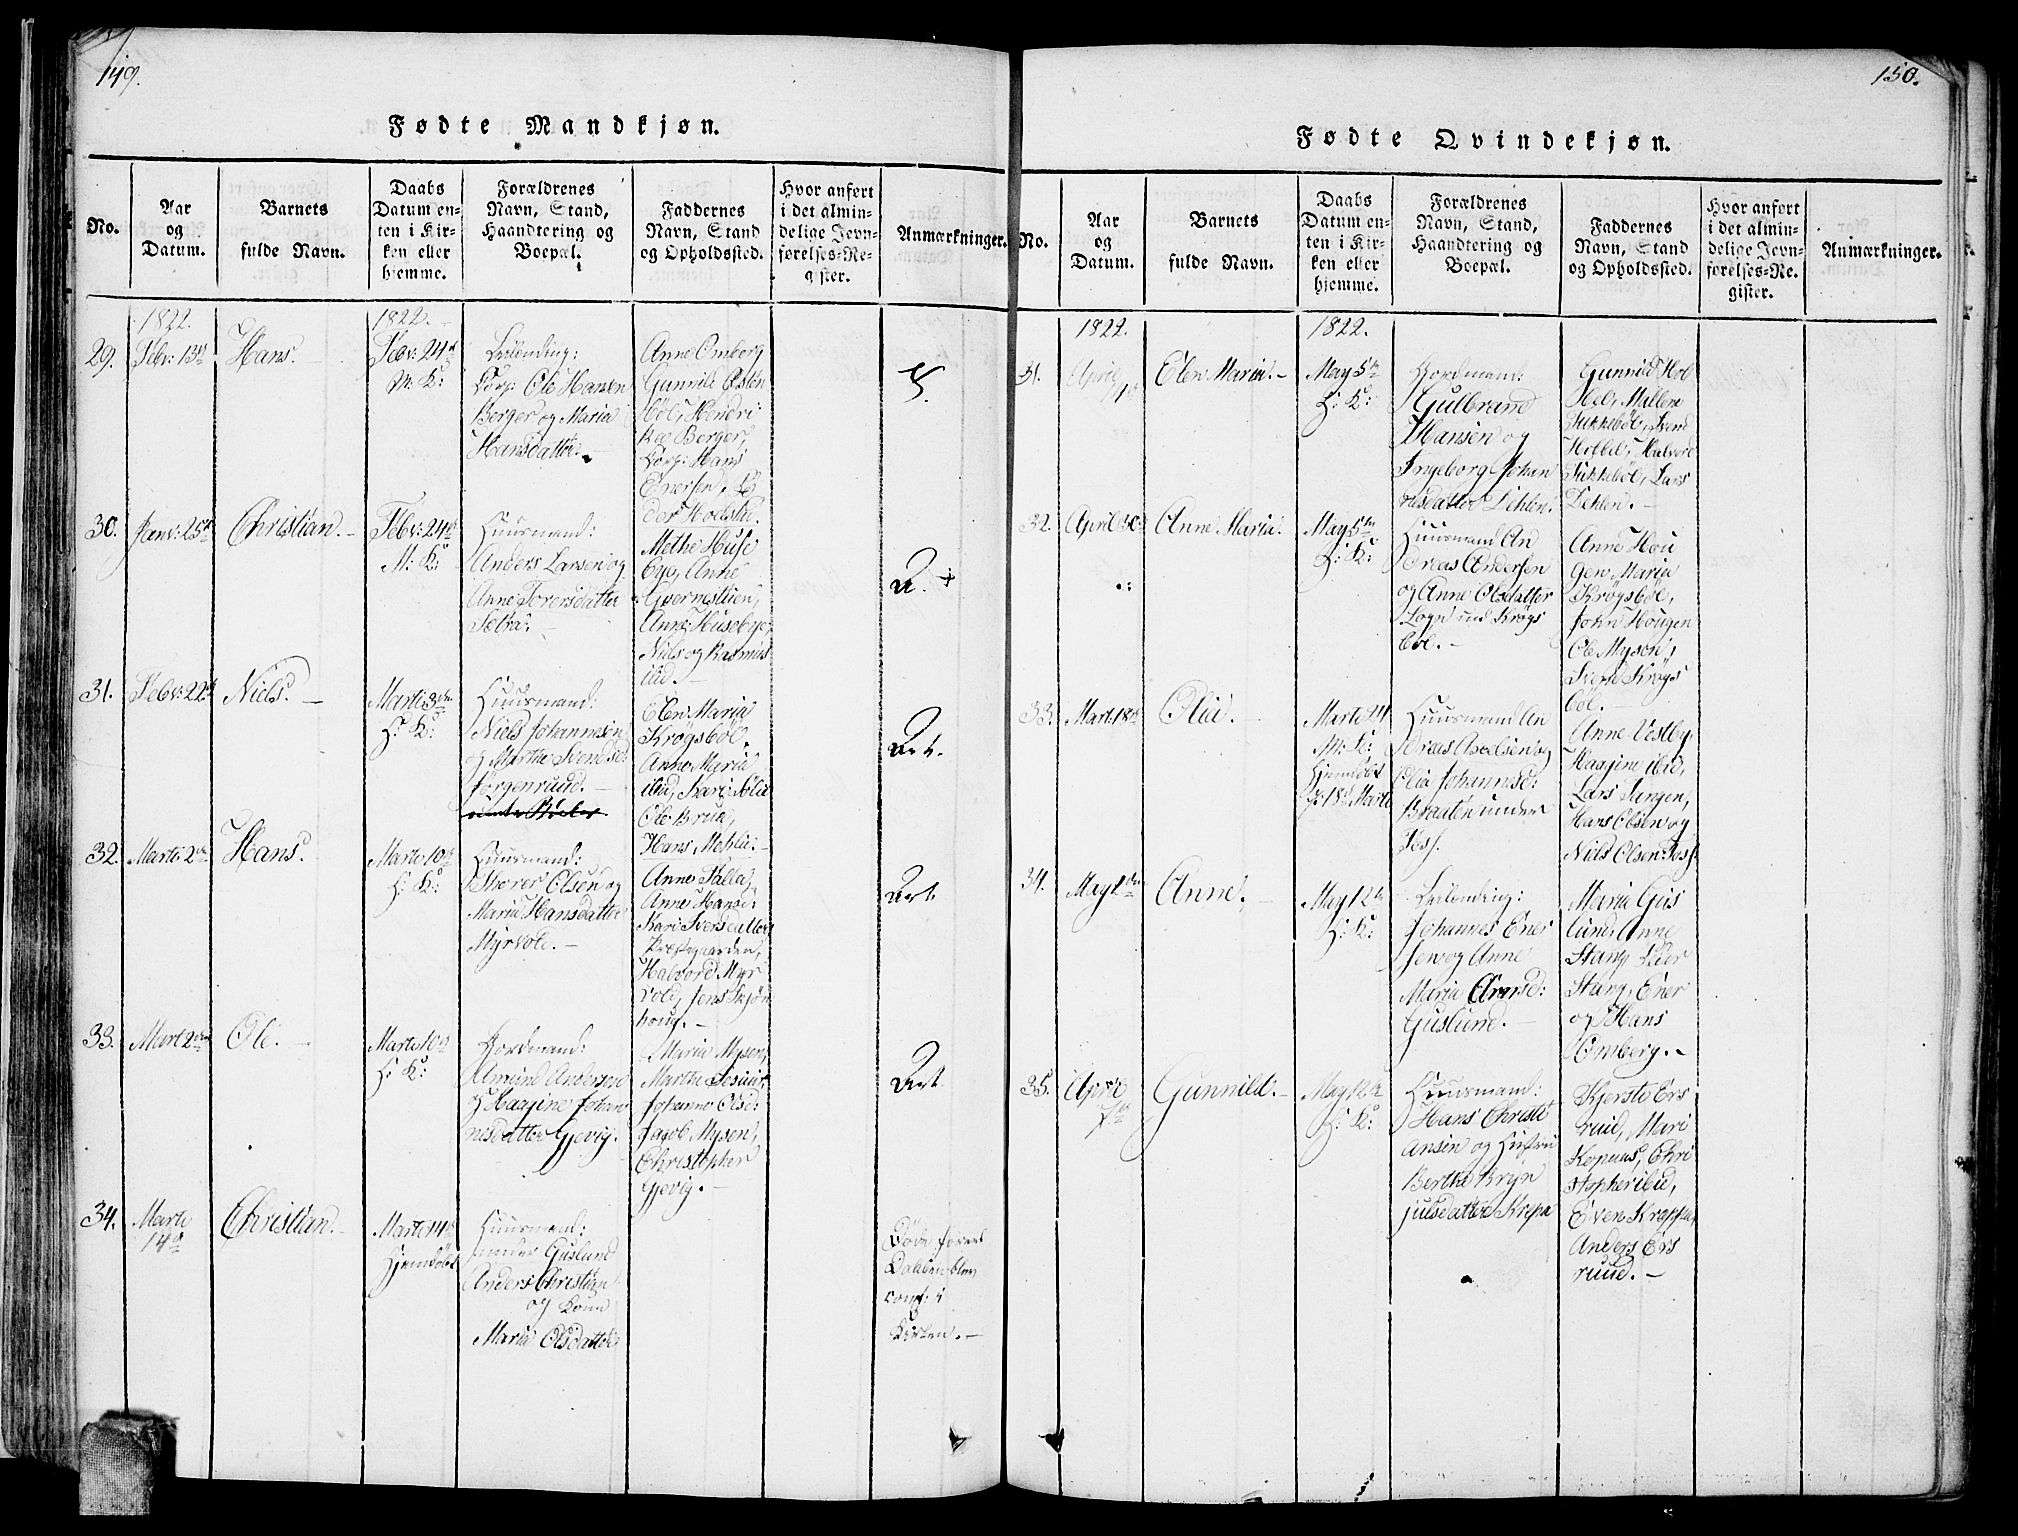 149.
Fødte Mandkjøn.
No.
Aar
og
Datum.
Barnets
fulde Navn.
Daabs
Datum en-
ten i Kir-
ken eller
hjemme.
Forældrenes
Navn, Stand,
Haandtering og
Boepæl.
Faddernes
Navn, Stand
og Opholdssted.
Hvor anført
i det almin-
delige Jevn-
førelses-Re-
gister.
Anmærkninger.
1822.
1822.
29.
Febr: 13de
Hans.
Febr: 24de
M: K:
Leilending:
Corp: Ole Hansen
Berger og Maria
Hansdatter.
Anne Omberg
Gunnild Østen
böl, Hendri
kee Berger,
Corp: Hans
Enersen, Pe
der Hoelstu.
30.
Janv: 25de
Christian.
Febv: 24de
M: K:
Huusmand:
Anders Larsen og
Anne Torersdatter
Sætra.
Methe Huse
bye, Anne
Gjermstuen,
Anne Husebye,
Niels og Rasmus
ibid.
31.
Febv: 22de
Niels.
Marti 3die
H: K:
Huusmand:
Niels Johannesen
og Marthe Svendsd:
Jörgenruud.
Elen Maria
Krogsböl,
Anne Maria
ibid, Kari Solie
Ole Bruu,
Hans Mehlie.
Art.
32.
Marti 2den
Hans.
Marti 10de
H: K:
Huusmand:
Thorer Olsen og
Maria Hansdatter
Myrvold.
Anne Falla,
Anne Hansd:
Kari Iversdatter
Præstegaarden,
Halvord Myr
vold, Jens Skjön
houg.
Art.
33.
Marti 2den
Ole.
Marti 10de
H: K:
Gordmand:
Amund Andersen
og Haagine Johan
nesdatter Gjevig.
Maria Mysen,
Marthe
Johanne Olsd:
Jagob Mysen,
Christopher
Gjevig.
Art.
34.
Marti
14de
Christian.
Marti 14de
Hjemdöbt
Huusmand:
under Guslund
Anders Christian
og Kone
Maria Olsdatter
Döde forend
Daaben blev
conf: i
Kirken.
150.
Fødte Qvindekjøn.
No.
Aar
og
Datum.
Barnets
fulde Navn.
Daabs
Datum en-
ten i Kir-
ken eller
hjemme.
Forældrenes
Navn, Stand,
Haandtering og
Boepæl.
Faddernes
Navn, Stand
og Opholdssted.
Hvor anført
i det almin-
delige Jevn-
førelses-Re-
gister.
Anmærkninger.
1822.
1822.
31.
April
Elen Maria.
May 5te
H: K:
Gordmand:
Gulbrand
Hansen og
Ingeborg Johan
nesdatter Dehlen.
Gunnild Hol
Mallene
Sikkeböl, Svend
Halvord
Sikkeböl, Lars
Dehlen.
32.
April 30
Anne Maria.
May 5te
H: K:
Huusmand An
dreas Andersen
og Anne Olsdatter
Krögs
böl.
Anne Hou
gen, Maria
Krögsböl,
John Hougen
Ole Mysen,
Svend Krögs
böl.
33.
Mart: 18de
Olia.
Marti 24
M: K:
Hjemdöbt
18de Marti
Huusmand An
dreas Axelsen og
Olia Johannesd:
Braaten under
Foss.
Anne Vestby,
Haagine ibid,
Lars
Hans Olsen og
Niels Olsen Foss.
34.
May 2den
Anne.
May 12te
H: K:
Leilending:
Johannes Ener
sen og Anne
Maria Arnesd:
Guslund.
Maria Gus
lund, Anne
Stang, Peder
Stang, Ener
og Hans
Omberg.
35.
April
Gunnild.
May 12te
H: K:
Huusmand:
Hans Christi
ansen og Hustru
Berthe Bryn
julsdatter Krepa
Kjersti Ers
rud, Mari
Kopuus, Chri
stopher ibid,
Even Kreppa,
Anders Ers
ruud.